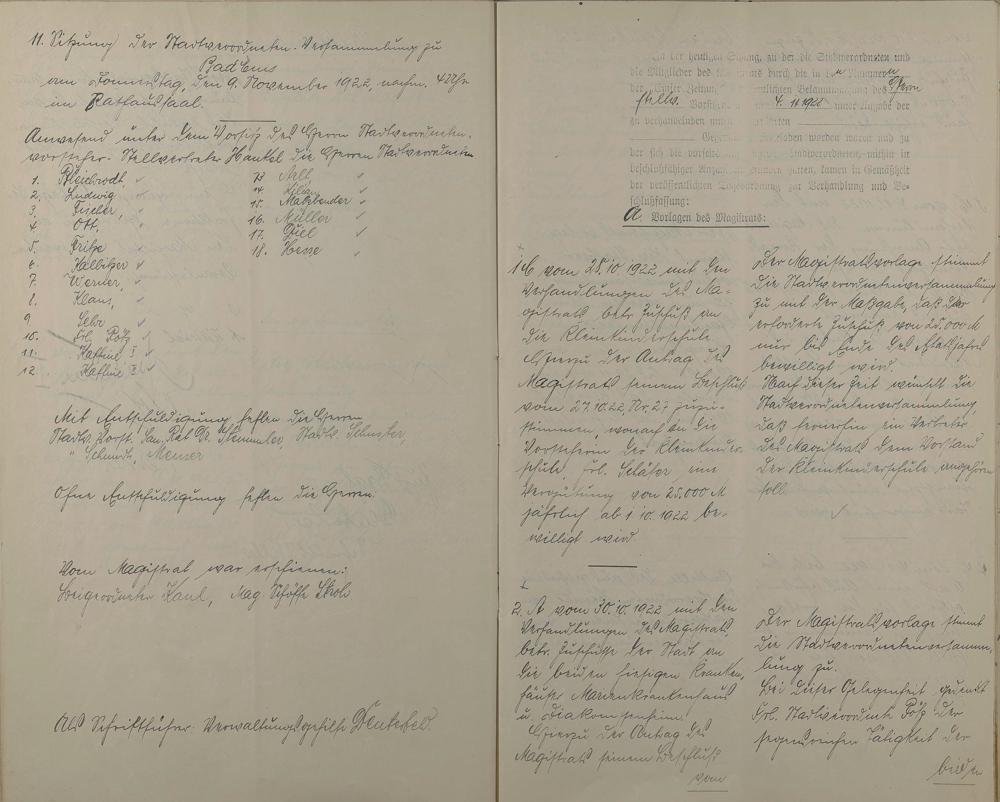 11. Sitzung der Stadtverordneten-Versammlung zu
Bad Ems
am Donnerstag, den 9. November 1922, nachm. 4 Uhr
im Rathaussaal.
Anwesend unter dem Vorsitz des Herrn Stadtverordneten-
vorsteher-Stellvertreter Hankel die Herren Stadtverordneten
1. Bleichrodt,
2. Ludwig
3. Fischer,
4. Ott,
5. Fritze
6.
7. Werner,
8. Klaus,
9.
10. Frl.
11. Kaffine I
12. Kaffine II
13.
14. Kilian
15.
16. Müller
17.
18. Hesse
Mit Entschuldigung fehlen die Herren
Stadtv. Vorst. San. Rat Dr. Stemmler, Stadtv. Schuster,
" Schmidt, Menser
Ohne Entschuldigung fehlen die Herren:
Vom Magistrat war erschienen:
Beigeordneter Kaul, Mag. Schöffe
Als Schriftführer Verwaltungsgehilfe
In der heutigen Sitzung, zu der die Stadtverordneten und
die Mitglieder des Magistrats durch die in den Nummern
der Emser Zeitung Bekanntmachung des Herrn
stellv. Vorstehers 4. 11 1922 unter Angabe der
zu verhandelnden
Gegen worden waren und zu
der sich die Stadtverordneten, mithin in
beschlußfähiger Anzahl hatten, kamen in Gemäßheit
der veröffentlichten Tagesordnung zur Verhandlung und Be-
schlußfassung:
A. Vorlagen des Magistrats:
1. C vom 28.10 1922 mit den
Verhandlungen des Ma-
gistrats betr. Zuschuß an
die Kleinkinderschule
Hierzu der Antrag des
Magistrats seinem Beschluß
vom 27.10.22, Nr. 27 zuzu-
stimmen, wonach an die
Vorsteherin der Kleinkinder-
schule, Frl. Schäfer eine
Vergütung von 25.000 M
jährlich ab 1.10.1922 be-
willigt wird
Der Magistratsvorlage stimmt
die Stadtverordnetenversammlung
zu mit der Maßgabe, daß der
erforderte Zuschuß von 25.000 M
nur bis Ende des Etatsjahres
bewilligt wird.
Nach dieser Zeit wünscht die
Stadtverordnetenversammlung,
daß fernerhin ein Vertreter
des Magistrats dem Vorstand
der Kleinkinderschule angehören
soll.
2. A vom 30.10.1922 mit den
Verhandlungen des Magistrats
betr. Zuschüsse der Stadt an
die beiden hiesigen Kranken-
häuser Marienkrankenhaus
u. Diakonissenheim
Hierzu der Antrag des
Magistrats seinem Beschluß
vom
Der Magistratsvorlage stimmt
die Stadtverordnetenversamm-
lung zu.
Bei dieser Gelegenheit gedenkt
Frl. Stadtverordnete der
segensreichen Tätigkeit der
beiden